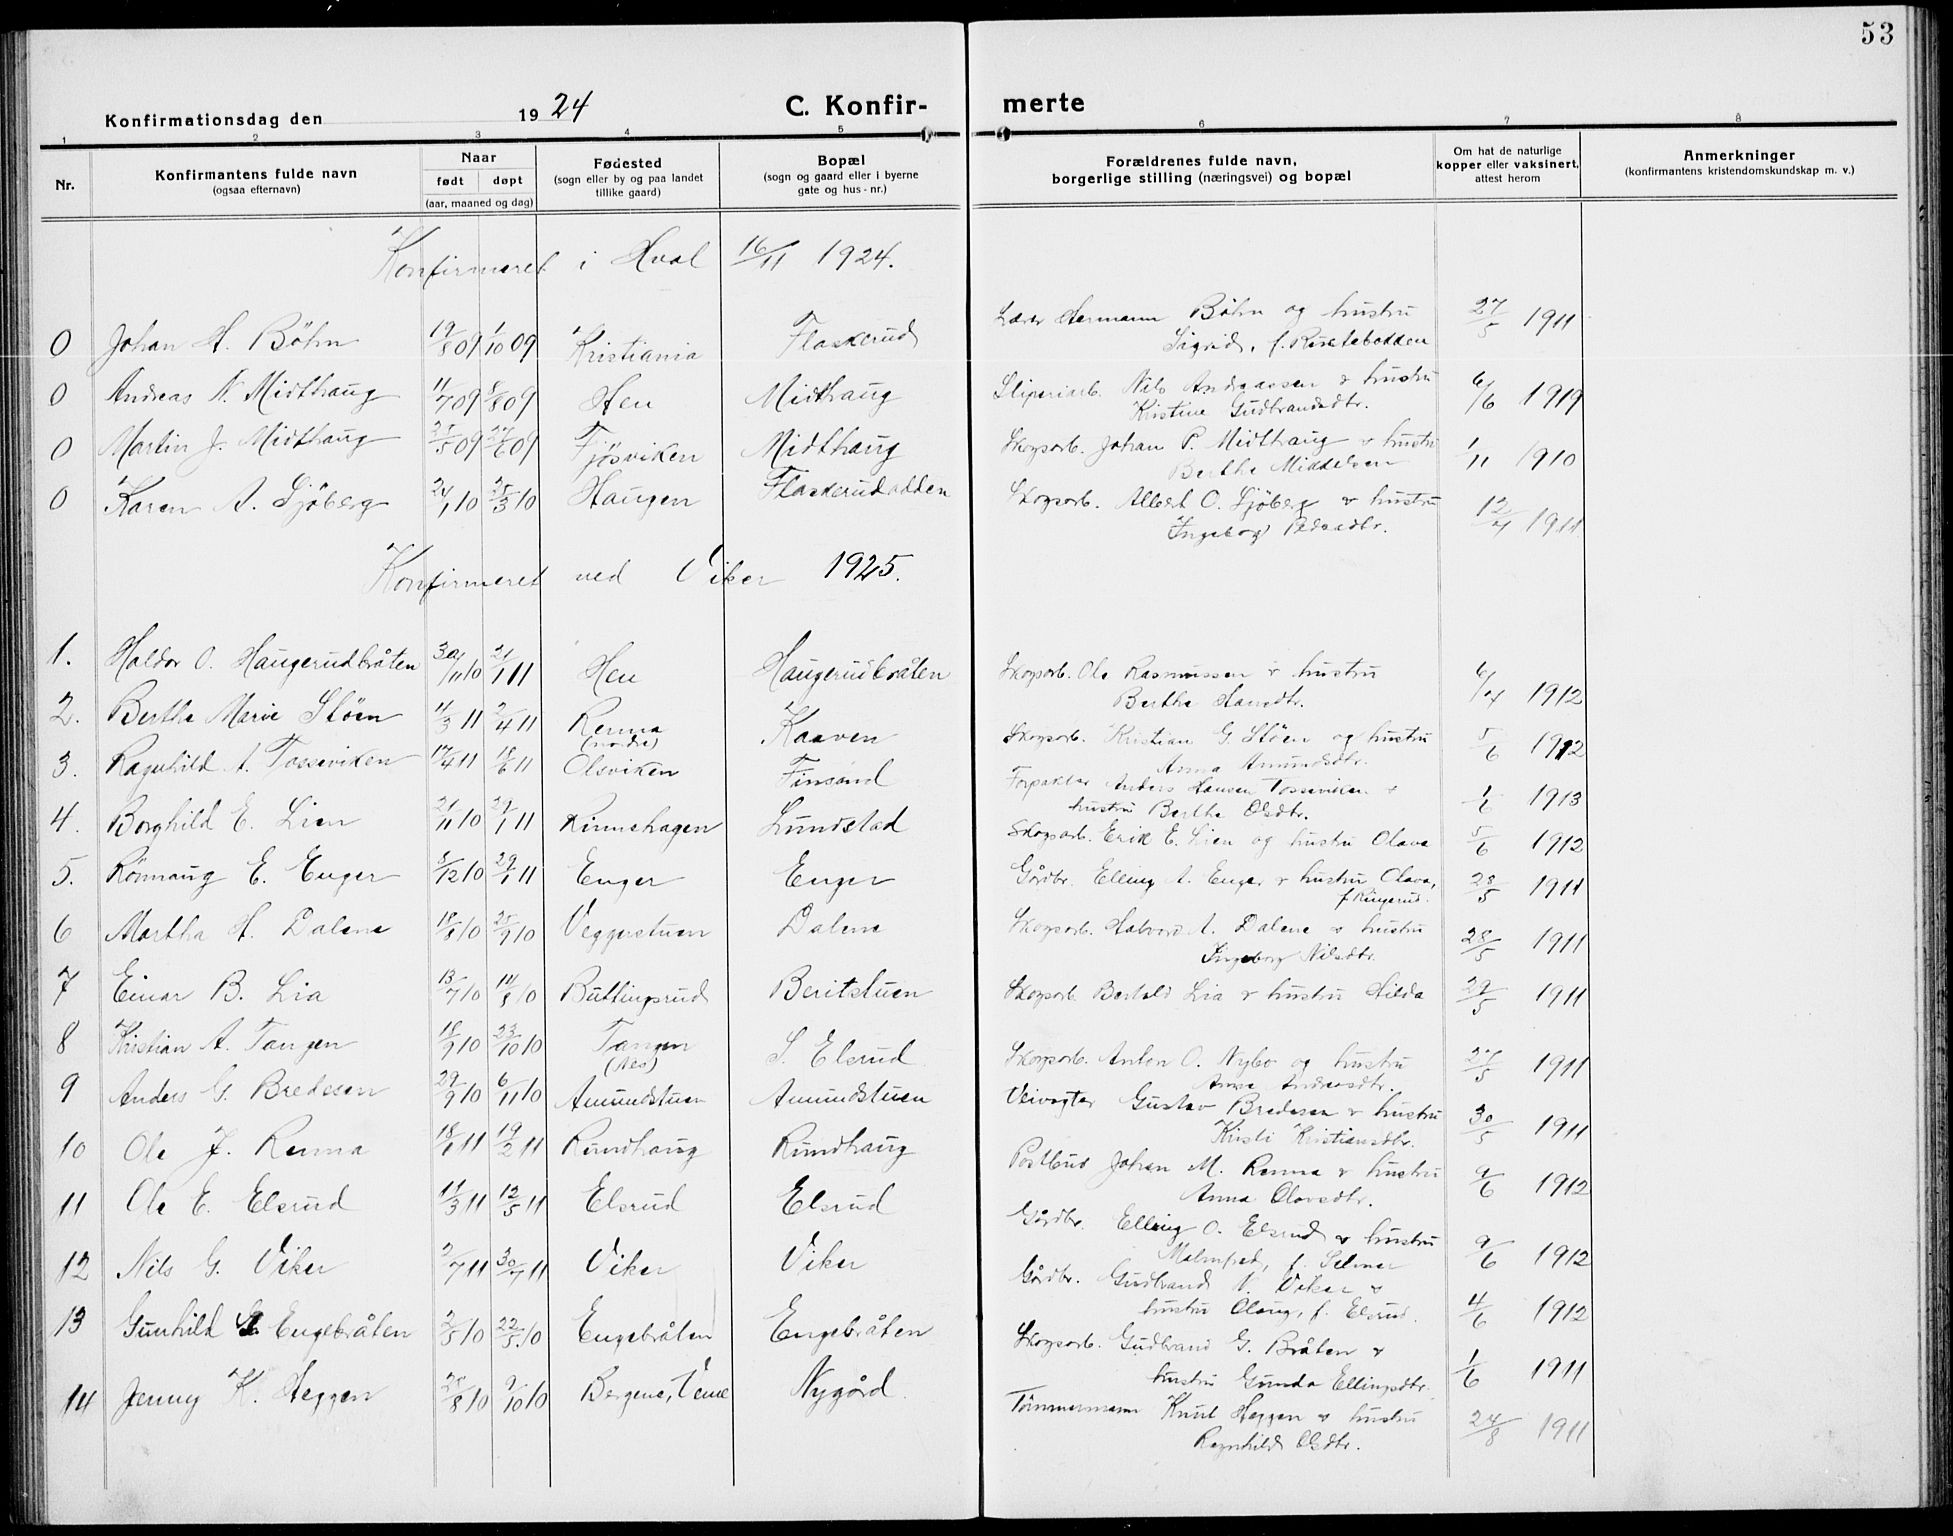 53
Konfirmationsdag den 1924 C. Konfir- merte
1 2 3 4 5 6 7 8
Nr. Konfirmantens fulde navn (ogsaa efternavn) Naar født døpt (aar, maaned og dag) Fødested (sogn eller by og paa landet tillike gaard) Bopæl (sogn og gaard eller i byerne gate og hus-nr.) Forældrenes fulde navn, borgerlige stilling (næringsvei) og bopæl Om hat de naturlige kopper eller vaksinert, attest herom Anmerkninger (konfirmantens kristendomskundskap m. v.)
Konfirmeret i Hval 16/11 1924.
0 Johan H. Böhn 19/8 09 1/10 09 Kristiania Flaskerud Lærer Hermann Böhn og hustru 27/5 1911
Sigrid, f.
0 Andreas N. Midthaug 11/7 09 8/8 09 Hen Midthaug Sliperiarb. Nils Andreassen & hustru 6/6 1919
Kristine Gudbrandsdtr.
0 Martin J. Midthaug 25/5 09 27/6 09 Fjösviken Midthaug Skogsarb. Johan P. Midthaug & hustru 1/11 1910
Berthe
0 Karen A. Sjöberg 24/1 10 25/3 10 Haugen Flaskerudodden Skogsarb. Albert O. Sjöberg & hustru 12/4 1911
Ingeborg Pedersdtr.
Konfirmeret ved Viker 1925.
1. Haldor O. Haugerudbråten 30/11 10 21/1 11 Hen Haugerudbråten Skogsarb. Ole Rasmussen & hustru 6/4 1912
Berthe Hansdtr.
2. Berthe Marie Støen 11/3 11 2/4 11 Renna Kaaven Skogsarb. Kristian G. Støen og hustru 5/6 1912
(nordre)
Anna Amundsdtr.
3. Ragnhild A. Tosseviken 17/4 11 18/6 11 Olsviken Finsand Forpakter Anders Hansen Tosseviken & 1/6 1913
hustru Berthe Olsdtr.
4. Borghild E. Lien 21/11 10 29/1 11 Rinnehagen Lundstad Skogsarb. Erik E. Lien og hustru Olava 5/6 1912
5. Rönnaug E. Enger 5/12 10 29/1 11 Enger Enger Gårdbr. Elling A. Enger & hustru Olava, 28/5 1911
f. Ringerud.
6 Martha H. Dalene 18/8 10 25/9 10 Veggerstuen Dalene Skogsarb. Halvord A. Dalene & hustru 28/5 1911
Ingeborg Nilsdtr.
7 Einar B. Lia 13/7 10 14/8 10 Buttingsrud Beritstuen Skogsarb. Bertold Lia & hustru Hilda 29/5 1911
8 Kristian A. Tangen 18/9 10 23/10 10 Tangen S. Elsrud Skogsarb. Anton O. Nybo og hustru 27/5 1911
(Aes)
Anne Andreasdtr.
9 Anders G. Bredesen 29/9 10 6/11 10 Amundstuen Amundstuen Veivogter Gustav Bredesen & hustru 30/5 1911
Kristi Kristiansdtr.
10 Ole J. Renna 18/1 11 19/2 11 Rundhaug Rundhaug Postbud Johan M. Renna & hustru 9/6 1912
Anna Olavsdtr.
11 Ole E. Elsrud 11/3 11 12/5 11 Elsrud Elsrud Gårdbr. Elling O. Elsrud & hustru 9/6 1912
Malmfrid, f. Selmer
12 Nils G. Viker 2/7 11 30/7 11 Viker Viker Gårdbr. Gudbrand N. Viker & 4/6 1912
hustru Olaug, f. Elsrud.
13 Gunhild G. Engebråten 2/5 10 22/5 10 Engebråten Engebråten Skogsarb. Gudbrand G. Bråten & 1/6 1911
hustru Gunda Ellingsdtr.
14 Jenny K. Heggen 25/8 10 9/10 10 Bergene, Veme Nygård Tömmermann Knut Heggen & hustru 24/8 1911
Ragnhild Olsdtr.